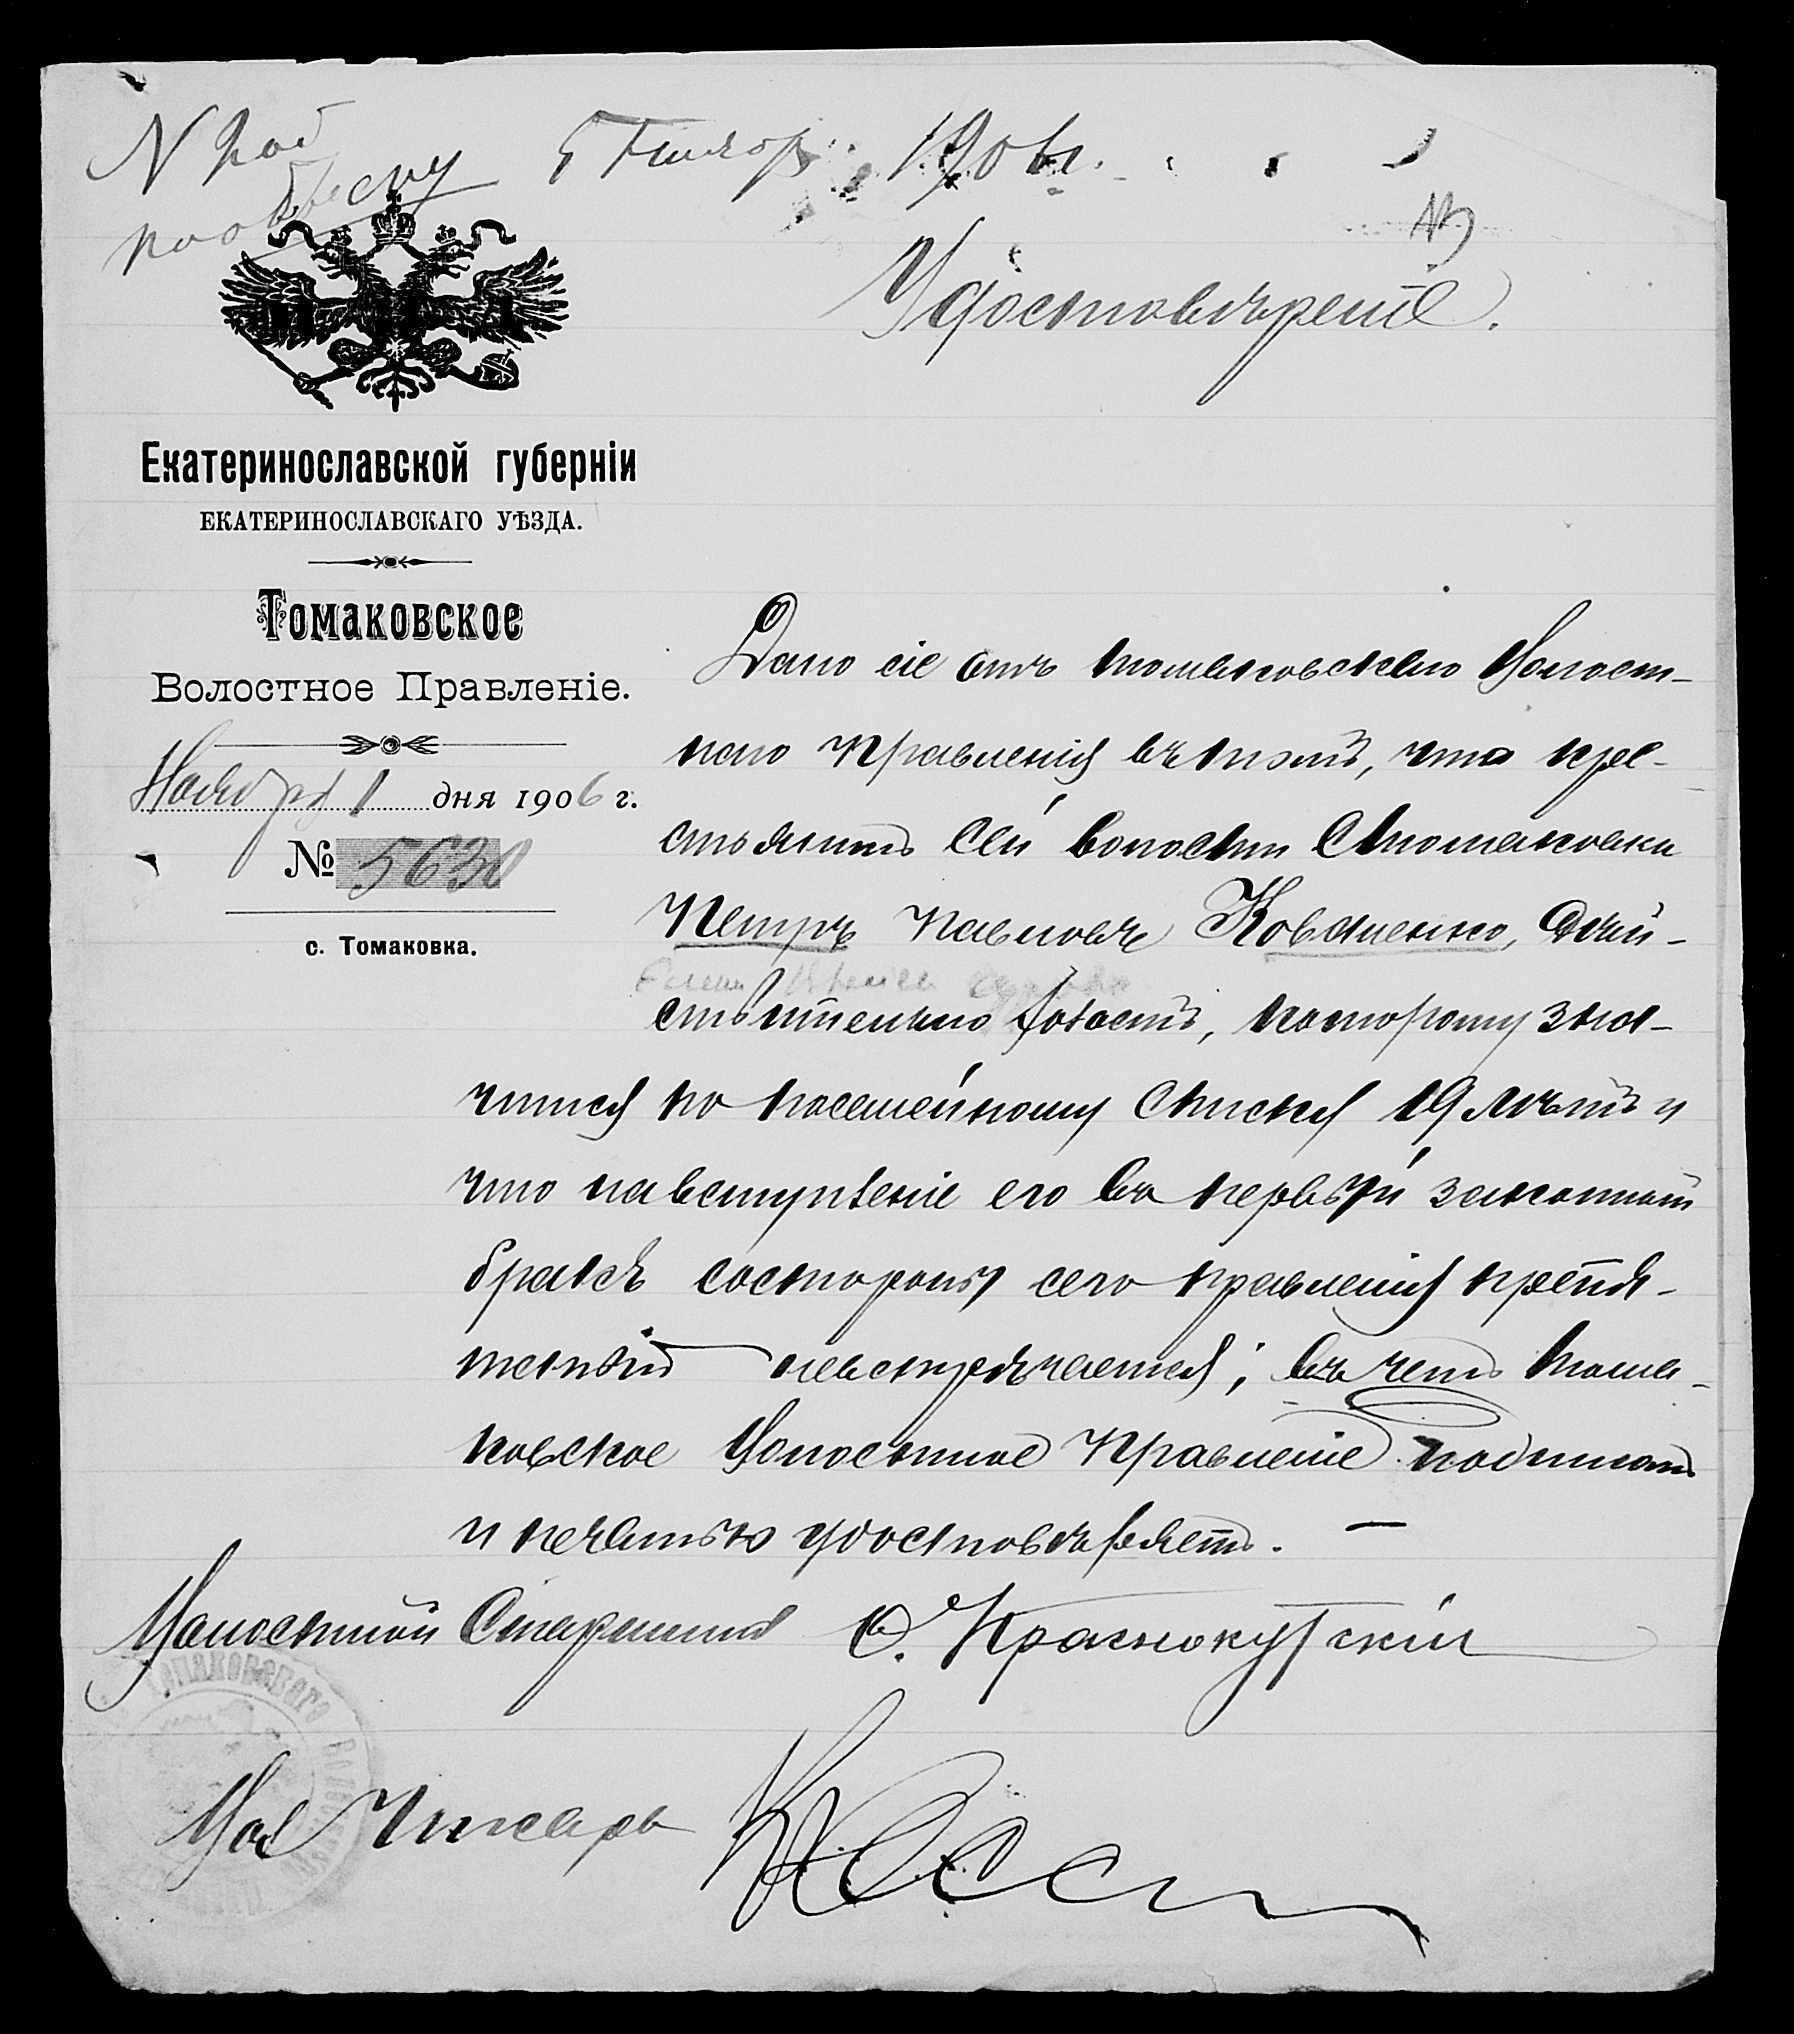 5 Ноября 1906 г.
Удостовѣреніе.
Екатеринославской губерніи
ЕКАТЕРИНОСЛАВСКАГО УѢЗДА.
Томаковское
Волостное Правленіе.
Ноября 1 дня 1906 г.
№ 5630
с. Томаковка.
Дано сіе отъ Томаковскаго Волост-
наго Правленія въ томъ, что кре-
стьянинъ сей волости С Томаковки
Петръ Павловъ Коваленко, дѣй-
ствительно холостъ, которому зна-
чится по посемейному списку 19 лѣтъ и
что навступленіе его въ первый законный
бракъ состороны сего правленія препя-
тствій невстрѣчается; въ чемъ Тома-
ковское Волостное Правленіе подписомъ
и печатью удостовѣряетъ. —
Волостной Старшина Ѳ. Краснокутскій
Вол Писарь
Томаковскаго Волостнаго